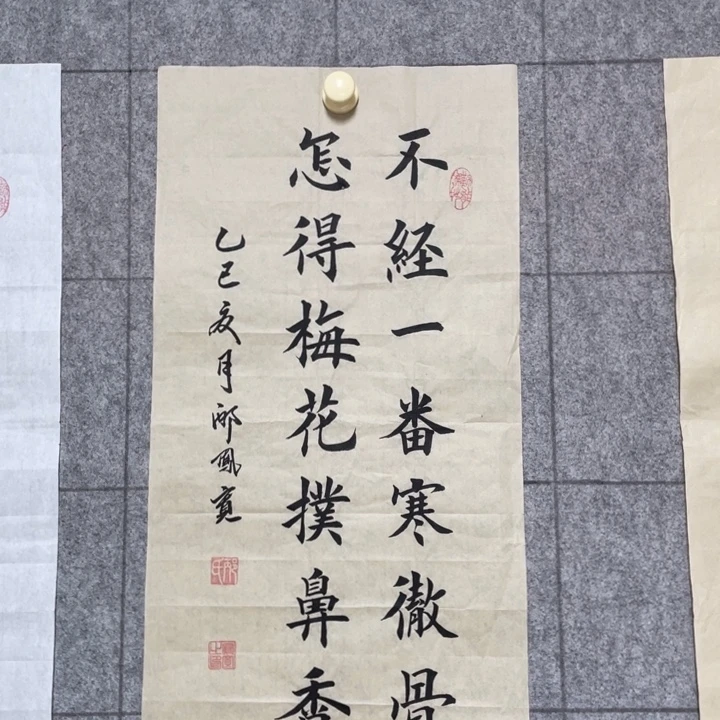 不经一番寒徹骨
怎得梅花撲鼻香
乙巳夏月邴鳳寬